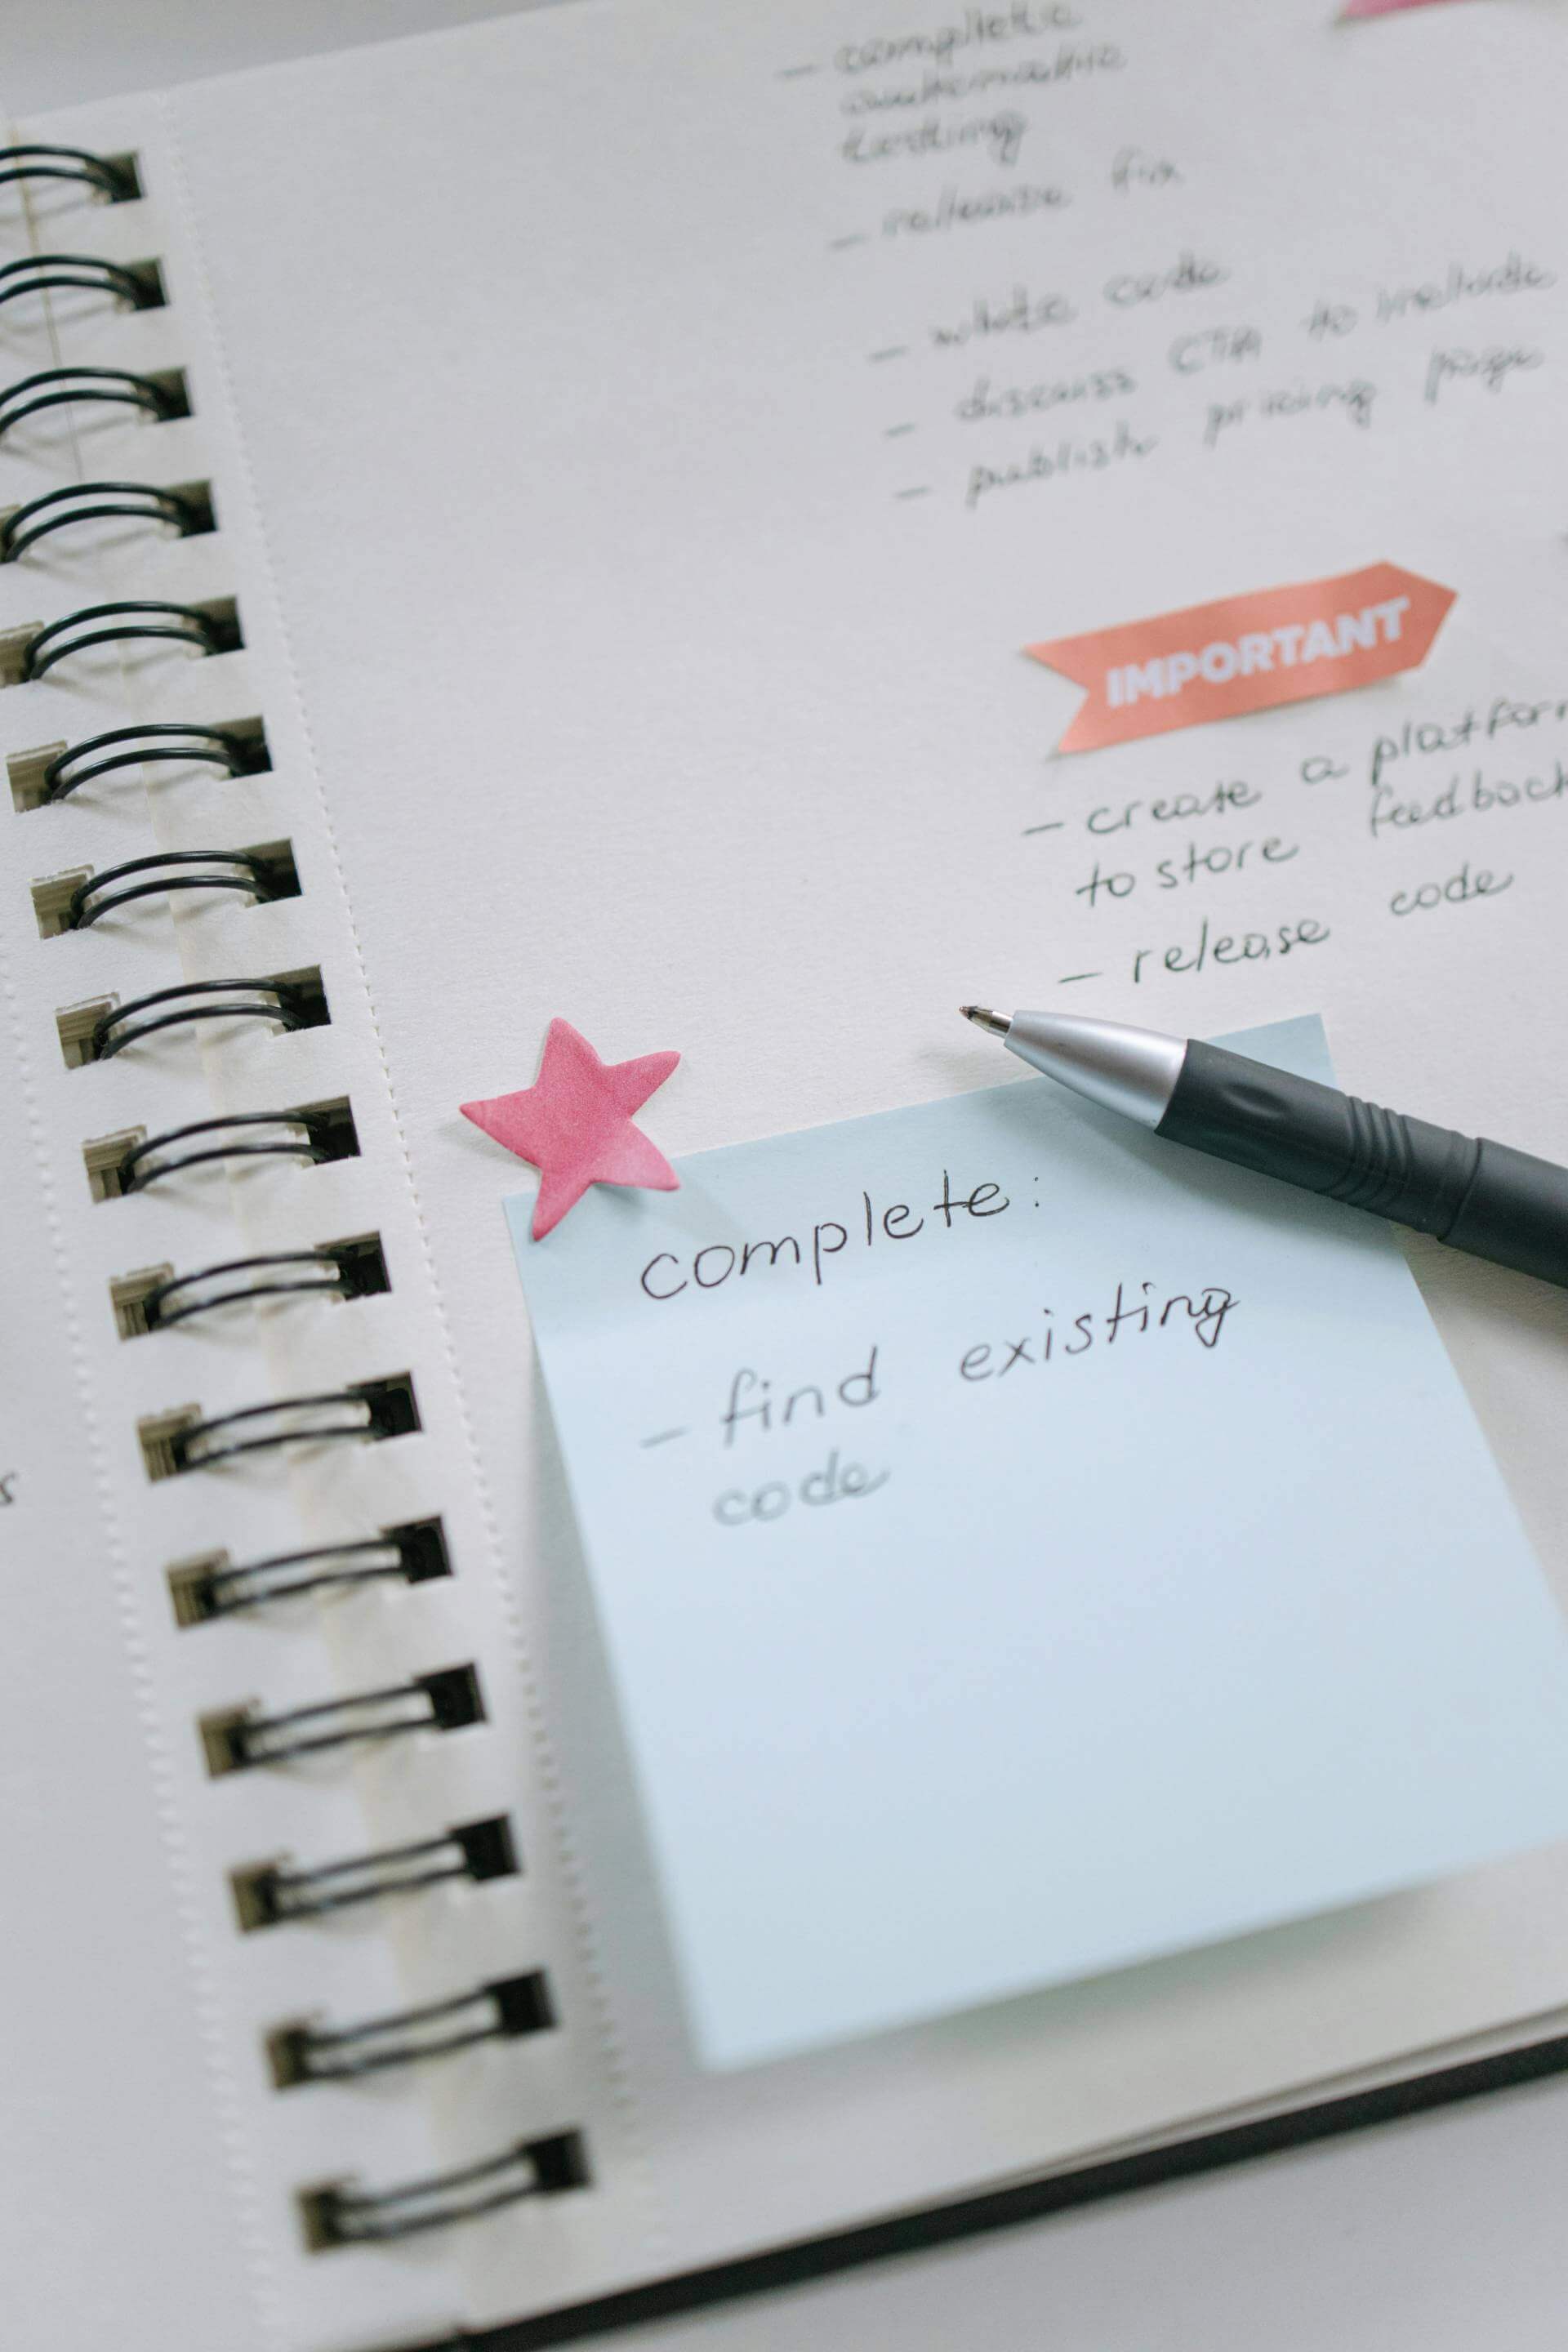 – complete
automatic
testing
– release fix
– write code
– discuss CTA to include
– publish pricing page
IMPORTANT
– create a platfor
to store feedback
– release code
complete:
– find existing
code
s